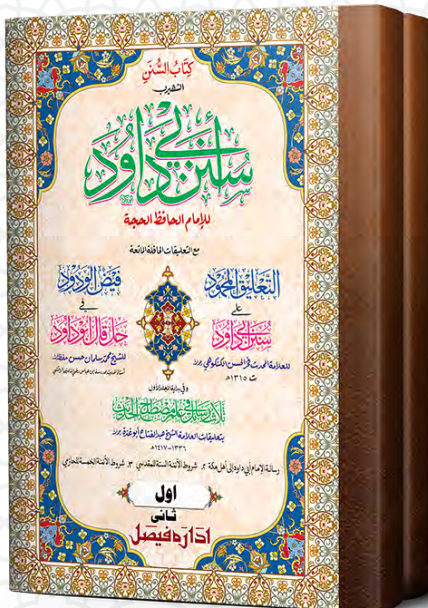 كِتَابُ السُّنَن
الشهير بـ
سُنَنِ أَبِي دَاوُد
للإمام الحافظ الحجة
مع التعليقات الحافلة الماتعة
التعليق المحمود
على
سنن أبي داود
للعلامة المحدث فخر الحسن الكنكوهي
ت ١٣١٥هـ
فيض الودود
في
حل قال أبو داود
للشيخ محمد سلمان حسن
وفي بداية المجلد الأول
ثلاث رسائل في علم مصطلح الحديث
بتعليقات العلامة الشيخ عبد الفتاح أبو غدة
١٣٣٦-١٤١٧هـ
رسالة الإمام أبي داود إلى أهل مكة ٢. شروط الأئمة الستة للمقدسي ٣. شروط الأئمة الخمسة للحازمي
اول
ثانی
ادارہ فیصل